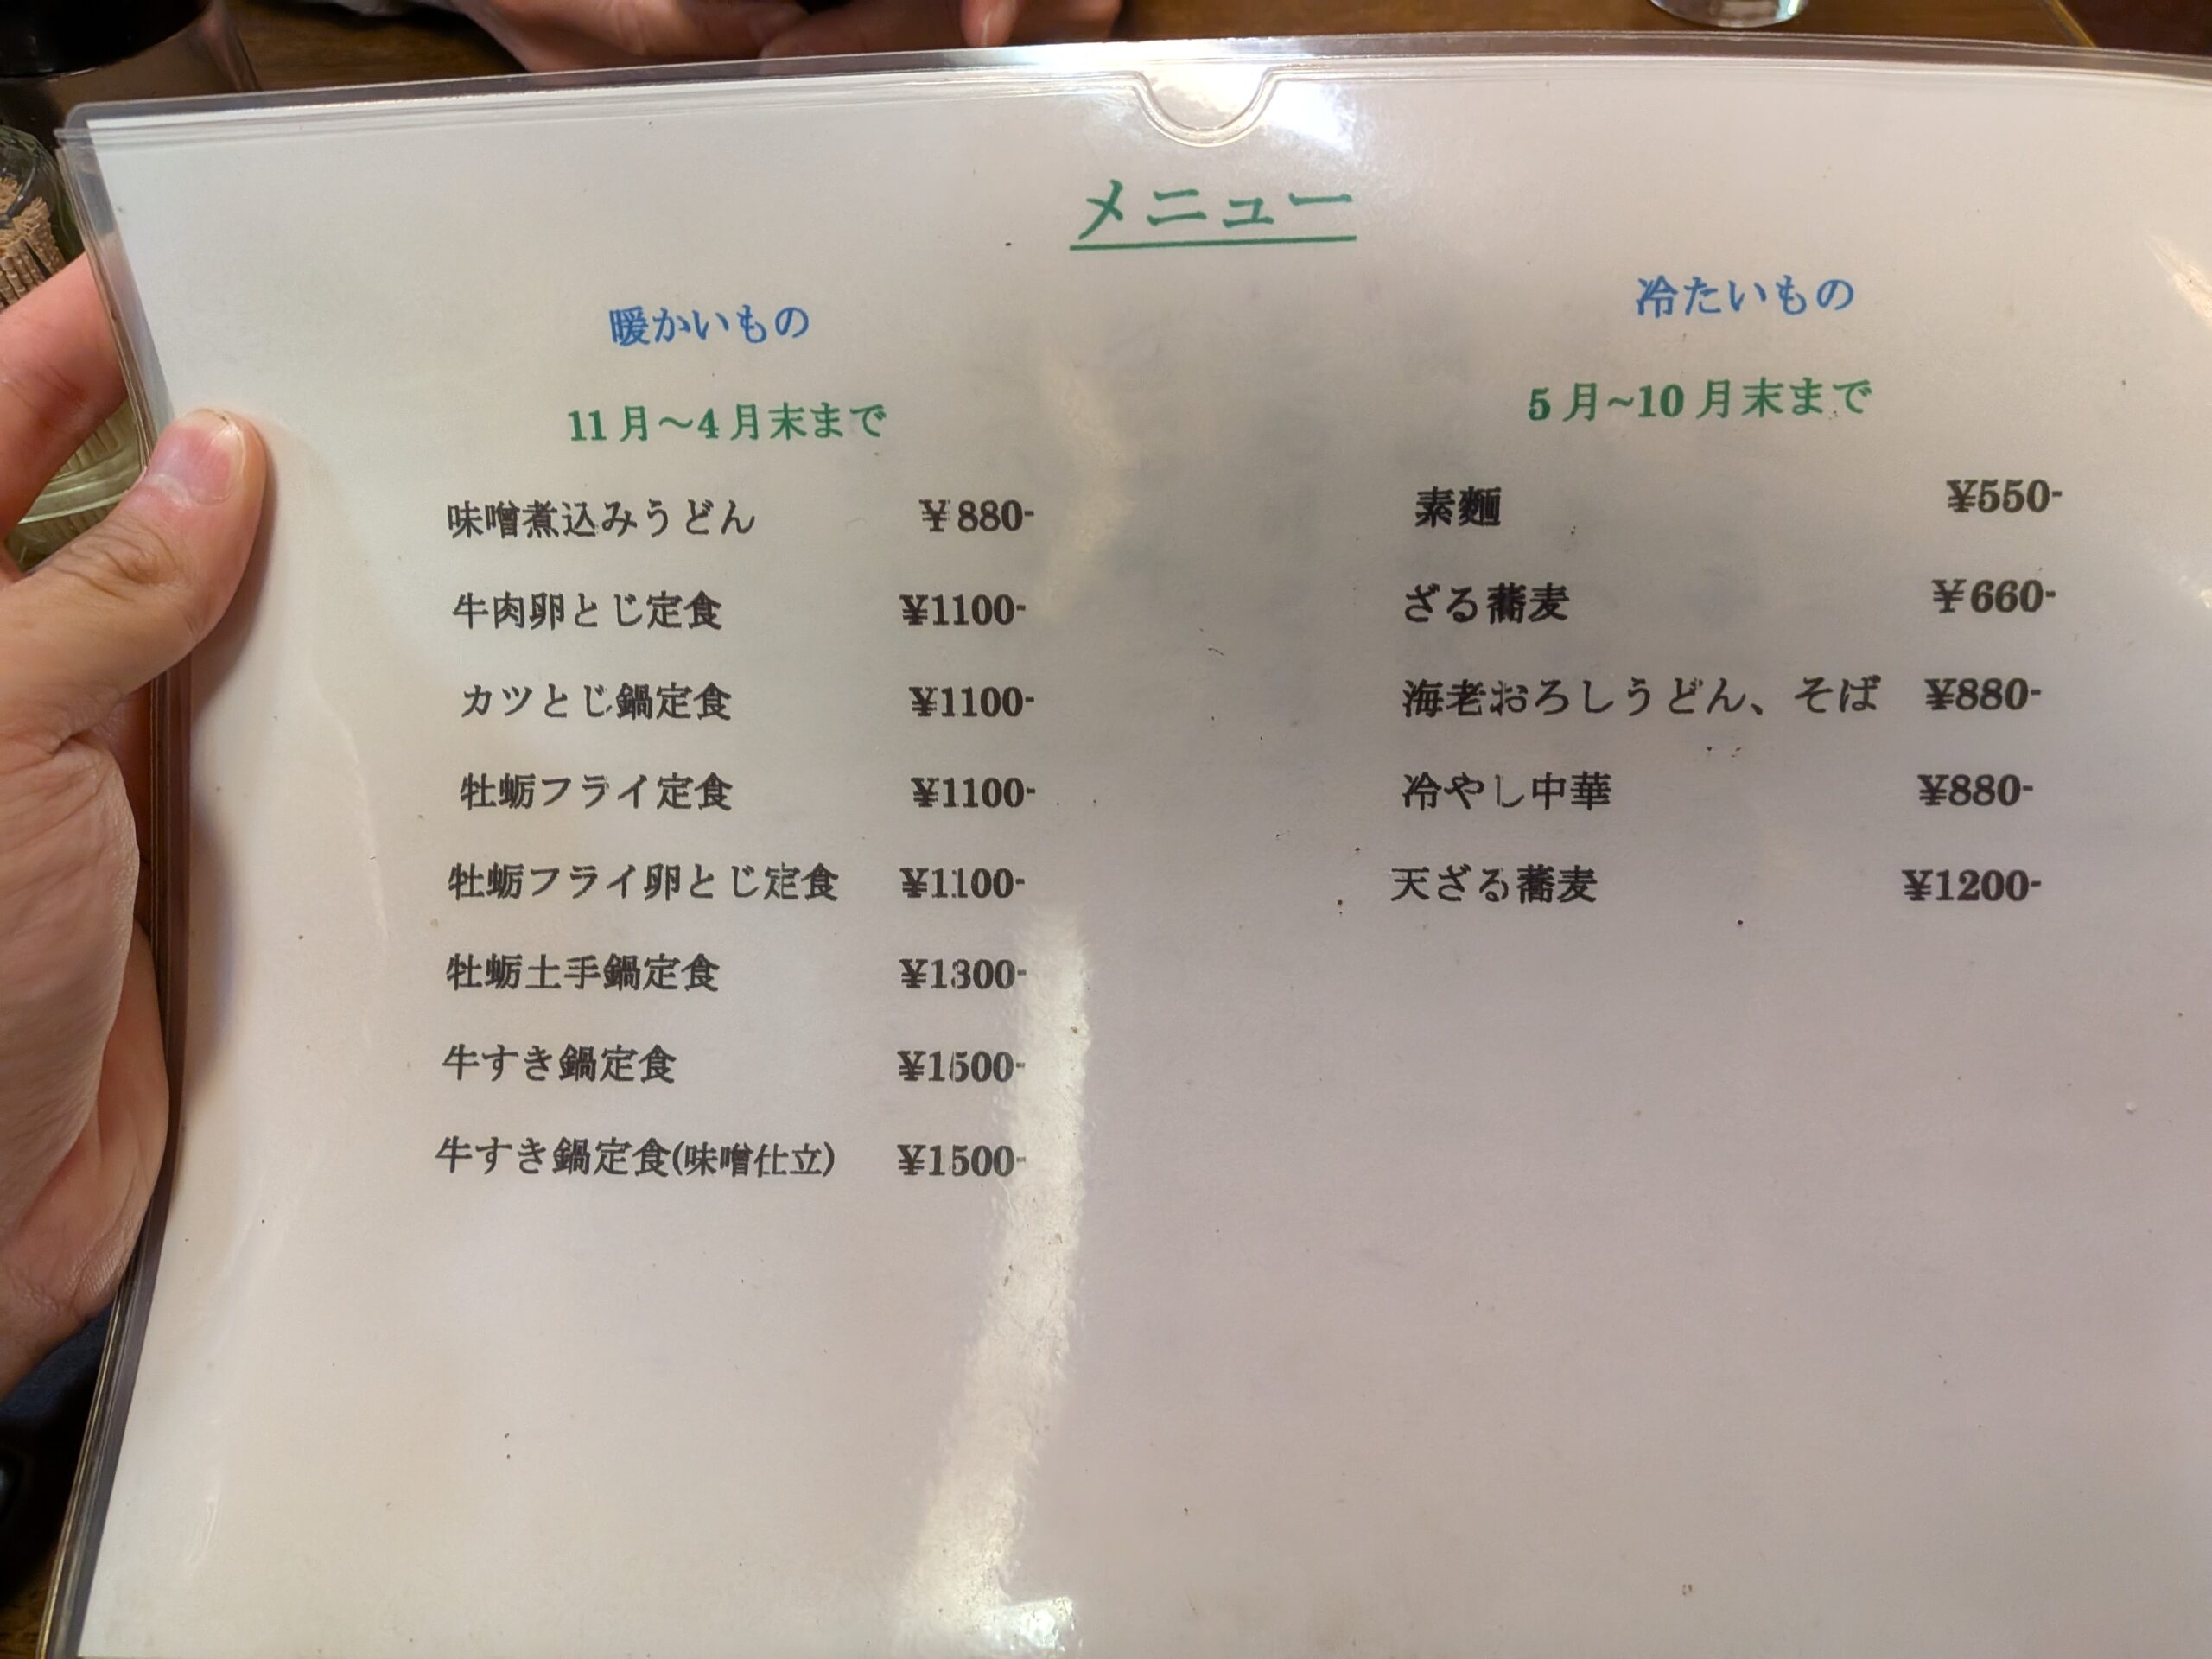 メニュー
暖かいもの
11月～4月末まで
味噌煮込みうどん ¥880-
牛肉卵とじ定食 ¥1100-
カツとじ鍋定食 ¥1100-
牡蛎フライ定食 ¥1100-
牡蛎フライ卵とじ定食 ¥1100-
牡蛎土手鍋定食 ¥1300-
牛すき鍋定食 ¥1500-
牛すき鍋定食(味噌仕立) ¥1500-
冷たいもの
5月~10月末まで
素麺 ¥550-
ざる蕎麦 ¥660-
海老おろしうどん、そば ¥880-
冷やし中華 ¥880-
天ざる蕎麦 ¥1200-